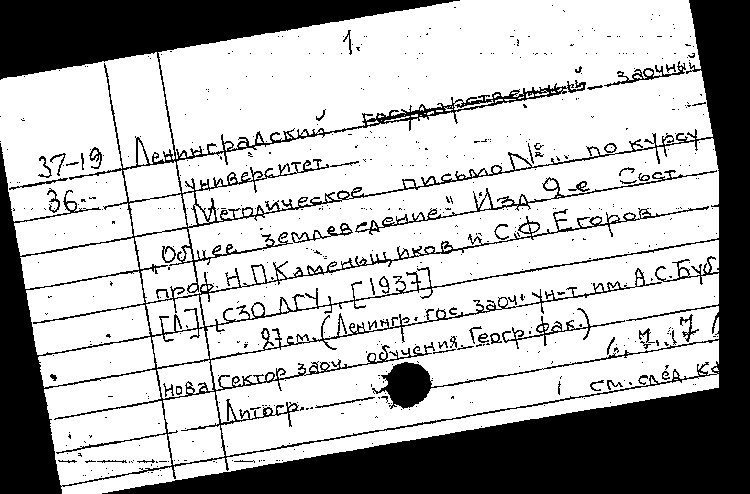 1.
37-19 Ленинградский государственный заочный
36-- университет.
Методическое письмо № ... по курсу
"Общее землеведение." Изд 2-е Сост.
проф. Н.П.Каменьщиков и С.Ф.Егоров.
[Л.], СЗО ЛГУ, [1937]
27 см. (Ленингр. гос. заоч. ун-т. им. А.С.Буб.
нова Сектор заоч. обучения. Геогр. фак.)
Литогр.
см. след. ка